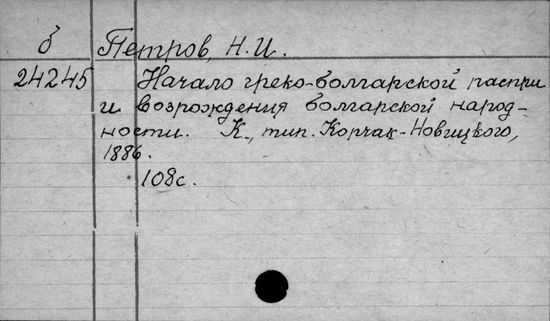 б Петров, Н.И.
24245 Начало греко-болгарской распри
и возрождения болгарской народ-
ности. К., тип. Корчак-Новицкого,
1886.
108с.